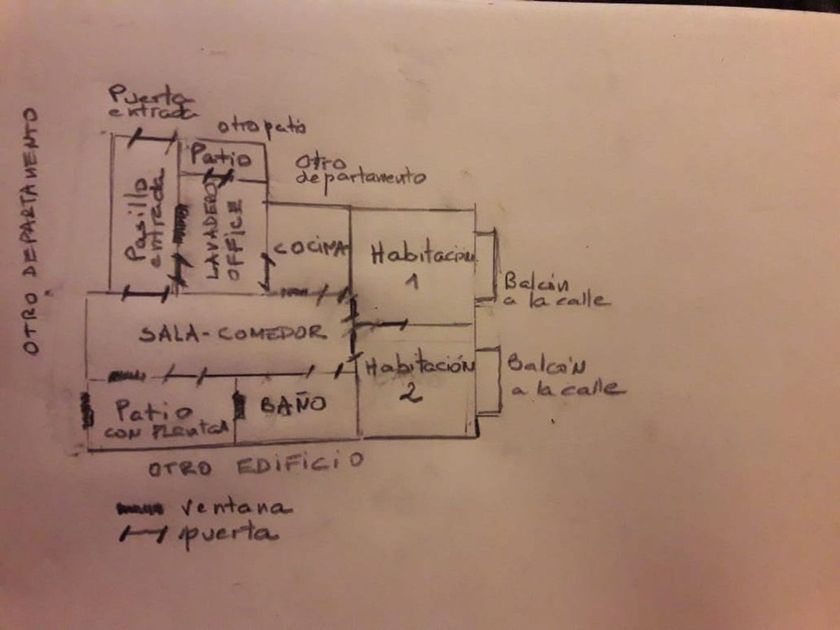 Puerta
entrada
otro patio
Patio
Otro
departamento
OTRO DEPARTAMENTO
Pasillo
entrada
LAVADERO
OFFICE
COCINA
Habitación
1
Balcón
a la calle
SALA-COMEDOR
Habitación
2
Balcón
a la calle
Patio
CON PLANTAS
BAÑO
OTRO EDIFICIO
ventana
puerta